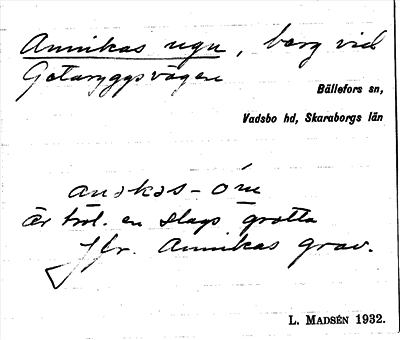 Annikas ugn, berg vid
Götaryggsvägen
Bällefors sn,
Vadsbo hd, Skaraborgs län
är trol. en slags grotta
Jfr. Annikas grav.
L. MADSÉN 1932.